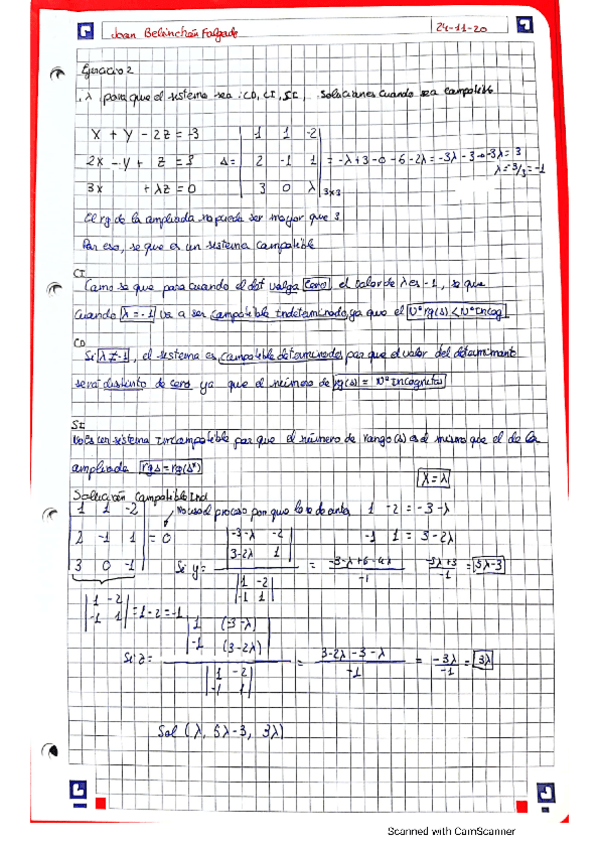 Joan Belinchón Falgado 24-11-20
Ejercicio 2
λ para que el sistema sea: CD, CI, SI, Soluciones cuando sea compatible
x + y - 2z = -3 | 1 1 -2 |
2x - y + z = 3 Δ= | 2 -1 1 | = -λ+3-0-6-2λ = -3λ-3 → -3λ = 3
3x + λz = 0 | 3 0 λ | 3x3 λ = -3/3 = -1
El rg de la ampliada no puede ser mayor que 3
Por eso, se que es un sistema compatible
CI
Como se que para cuando el det valga cero el valor de λ es -1, se que
cuando λ = -1 va a ser compatible indeterminado ya que el Nº rg(Δ) < Nº Incog
CD
Si λ ≠ -1, el sistema es compatible determinado por que el valor del determinante
será distinto de cero ya que el número de rg(Δ) = Nº Incognitas
SI
No es un sistema incompatible por que el número de rango(Δ) es el mismo que el de la
ampliada rgΔ = rg(Δ*)
x = λ
Solución compatible Ind
| 1 1 -2 | No uso el proceso por que lo de antes 1 -2 = -3-λ
| 2 -1 1 | = 0 | -3-λ -2 | -1 1 = 3-2λ
| 3 0 -1 | Si y = | 3-2λ 1 | / | 1 -2 | = -3-λ+6-4λ / -1 -5λ+3 / -1 = 5λ-3
| -1 1 |
| 1 -2 |
| -1 1 | = 1-2 = -1
| 1 (-3-λ) |
| -1 (3-2λ) |
Si z = / | 1 -2 | = 3-2λ-3-λ / -1 = -3λ / -1 = 3λ
| -1 1 |
Sol (λ, 5λ-3, 3λ)
Scanned with CamScanner